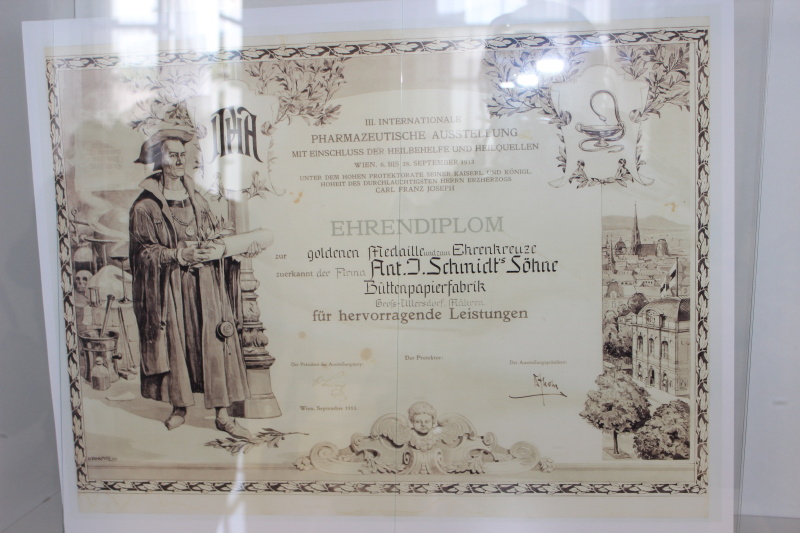 III. INTERNATIONALE
PHARMAZEUTISCHE AUSSTELLUNG
MIT EINSCHLUSS DER HEILBEHELFE UND HEILQUELLEN
WIEN, 6. BIS 28. SEPTEMBER 1913
UNTER DEM HOHEN PROTEKTORATE SEINER KAISERL. UND KÖNIGL.
HOHEIT DES DURCHLAUCHTIGSTEN HERRN ERZHERZOGS
CARL FRANZ JOSEPH
EHRENDIPLOM
zur goldenen Medaille und zum Ehrenkreuze
zuerkannt der Firma Ant. J. Schmidt's Söhne
Büttenpapierfabrik
Groß-Ullersdorf, Mähren
für hervorragende Leistungen
Der Präsident der
Der Protektor:
Der Ausstellungspräsident:
Wien, September 1913